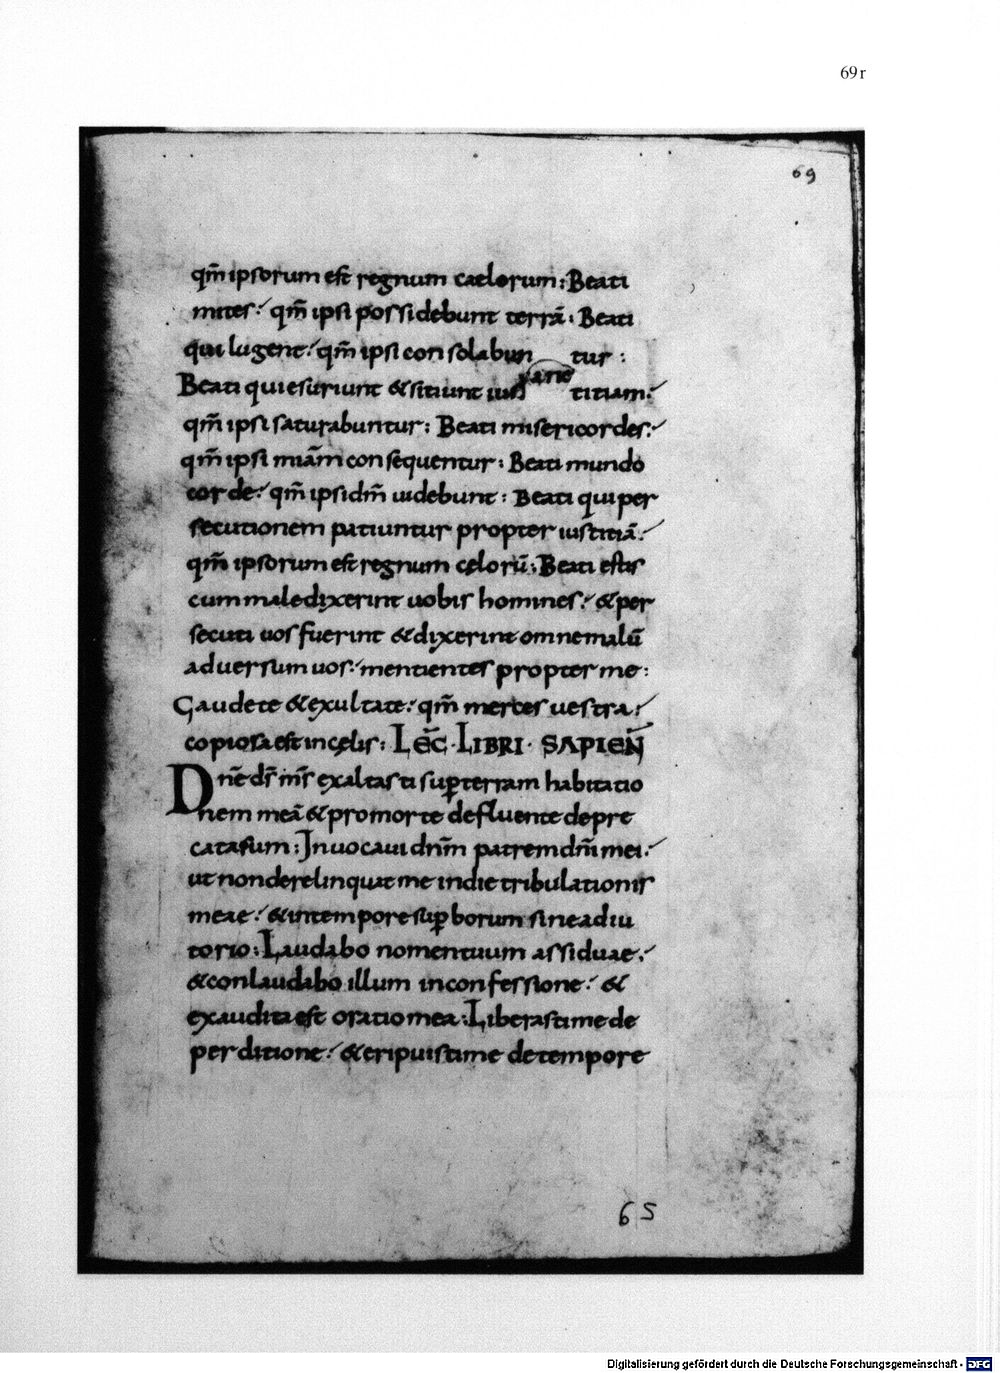 69r
69
qm̄ ipsorum est regnum caelorum: Beati
mites: qm̄ ipsi possidebunt terrā: Beati
qui lugent: qm̄ ipsi consolabun tur:
Beati qui esuriunt & sitiunt ius titiam:
qm̄ ipsi saturabuntur: Beati misericordes:
qm̄ ipsi miām consequentur: Beati mundo
corde: qm̄ ipsi dm̄ uidebunt: Beati qui per
secutionem patiuntur propter iustitiā:
qm̄ ipsorum est regnum cęlorū: Beati estis
cum maledixerint uobis homines: & per
secuti uos fuerint & dixerint omne malū
aduersum uos: mentientes propter me:
Gaudete & exultate: qm̄ merces uestra:
copiosa est in cęlis: LEC̄· LIBRI· SAPIEN̄
Dnē ds̄ ms̄ exaltasti sup̄ terram habitatio
nem meā & pro morte defluente depre
catasum: Inuocaui dnm̄ patrem dn̄i mei:
ut non derelinquat me in die tribulationis
meae: & in tempore sup̄borum sine adiu
torio: Laudabo nomen tuum assiduae:
& conlaudabo illum in confessione: &
exaudita est oratio mea: Liberasti me de
perditione: & eripuisti me de tempore
65
Digitalisierung gefördert durch die Deutsche Forschungsgemeinschaft - DFG